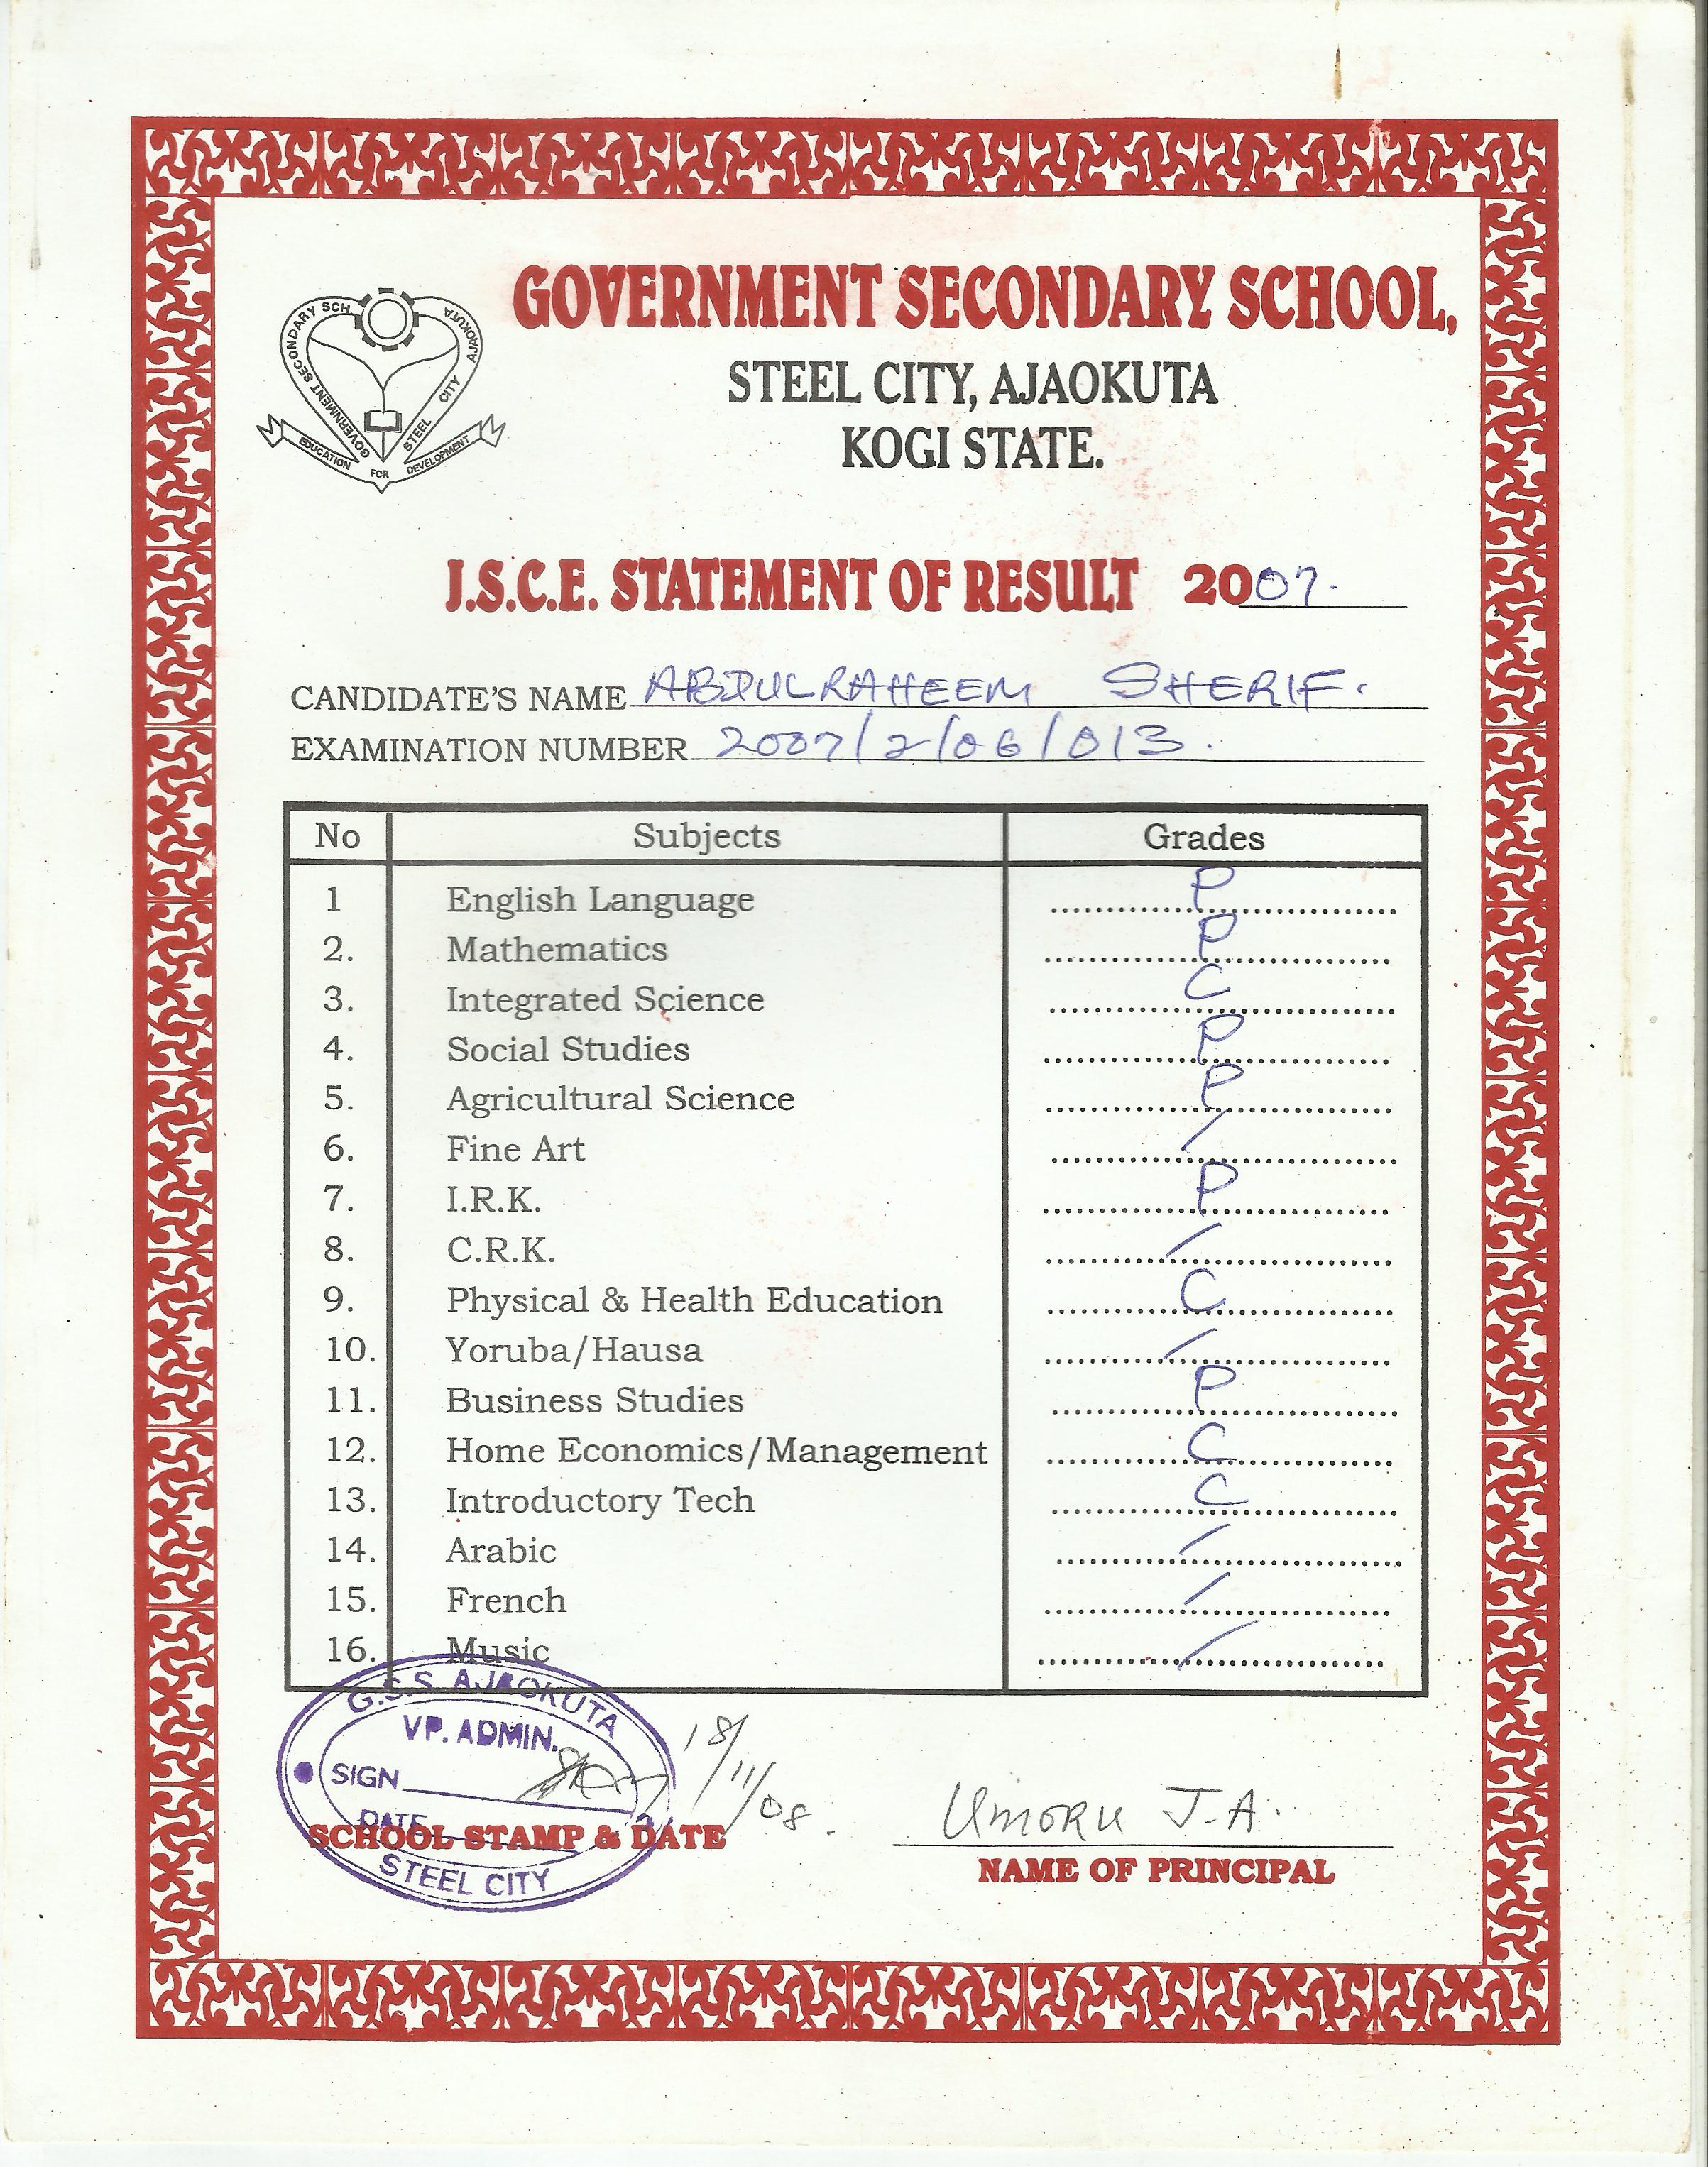 GOVERNMENT SECONDARY SCH
STEEL CITY AJAOKUTA
EDUCATION FOR DEVELOPMENT
GOVERNMENT SECONDARY SCHOOL,
STEEL CITY, AJAOKUTA
KOGI STATE.
J.S.C.E. STATEMENT OF RESULT 2007.
CANDIDATE'S NAME ABDULRAHEEM SHERIF.
EXAMINATION NUMBER 2007/2/06/013.
No Subjects Grades
1 English Language P
2. Mathematics P
3. Integrated Science C
4. Social Studies P
5. Agricultural Science P
6. Fine Art /
7. I.R.K. P
8. C.R.K. /
9. Physical & Health Education C
10. Yoruba/Hausa /
11. Business Studies P
12. Home Economics/Management C
13. Introductory Tech C
14. Arabic /
15. French /
16. Music /
G.S.S. AJAOKUTA
VP. ADMIN.
SIGN
DATE
STEEL CITY
18/11/08.
SCHOOL STAMP & DATE
Umoru J.A.
NAME OF PRINCIPAL